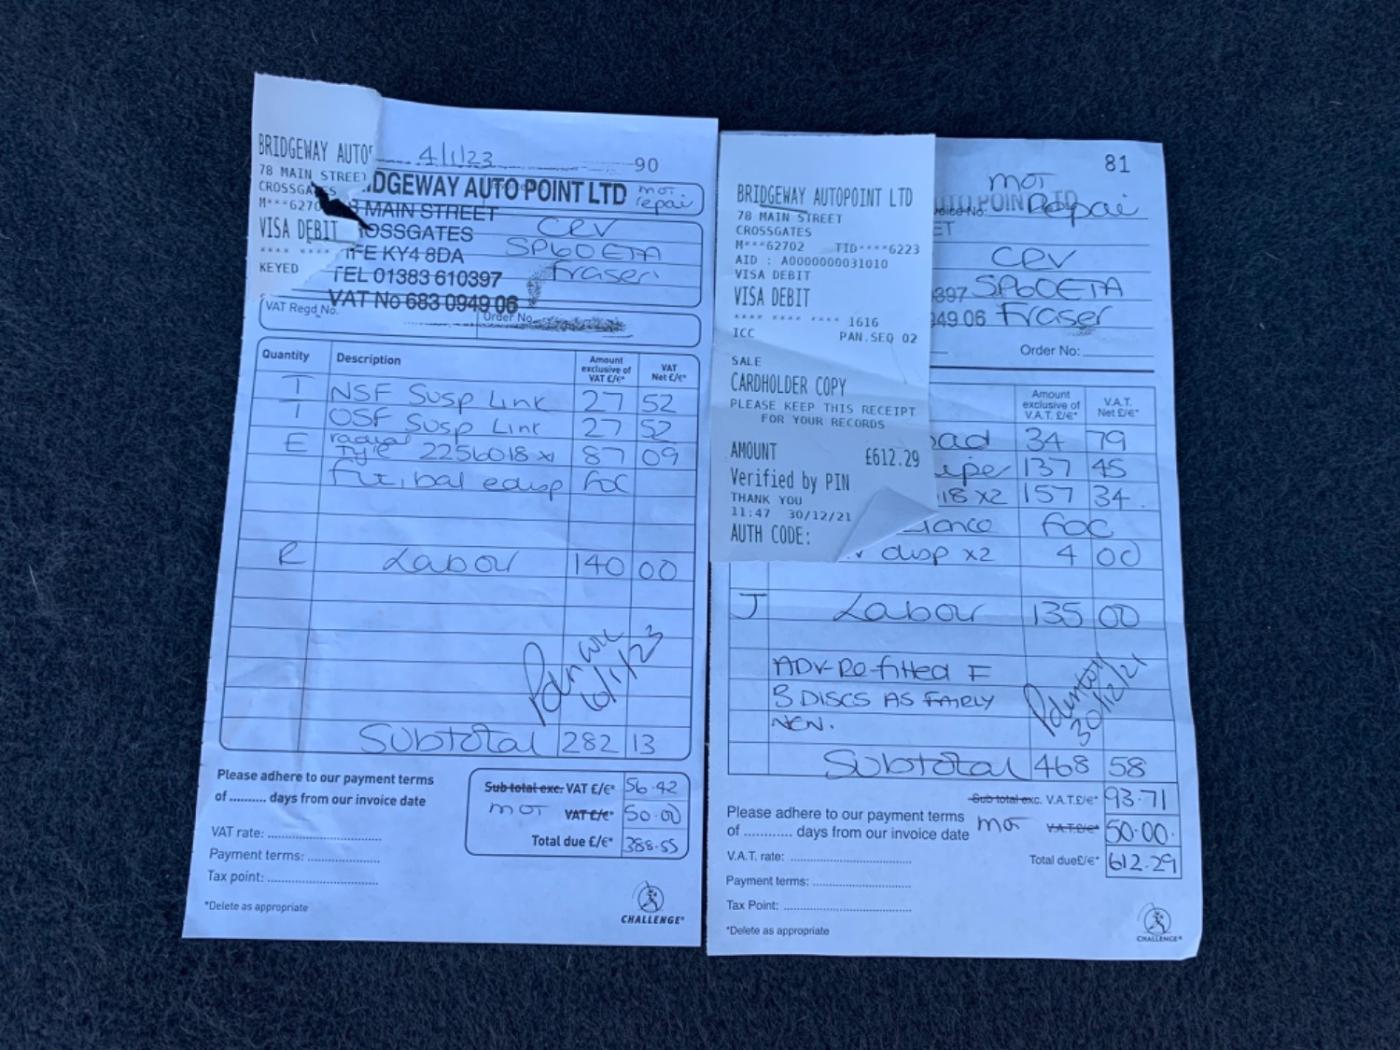 BRIDGEWAY AUTO
78 MAIN STREET
CROSSGA
M***6270
VISA DEBIT
**** ****
KEYED
4/1/23
90
IDGEWAY AUTO POINT LTD
MOT
repair
MAIN STREET
OSSGATES
CRV
FE KY4 8DA
SP60ETA
TEL 01383 610397
Fraser
VAT No 683 0949 06
VAT Regd No.
Order No.
Quantity Description Amount exclusive of VAT £/€* VAT Net £/€*
1 NSF Susp Link 27 52
1 OSF Susp Link 27 52
E radial Tyre 2256018 x1 87 09
bal FOC
R Labour 140 00
6/1/23
Subtotal 282 13
Please adhere to our payment terms
of .......... days from our invoice date
Sub total exc. VAT £/€* 56.42
MOT VAT £/€* 50.00
Total due £/€* 388.55
VAT rate:
Payment terms:
Tax point:
*Delete as appropriate
CHALLENGE®
BRIDGEWAY AUTOPOINT LTD
78 MAIN STREET
CROSSGATES
M***62702 TID****6223
AID : A0000000031010
VISA DEBIT
VISA DEBIT
**** **** **** 1616
ICC PAN.SEQ 02
SALE
CARDHOLDER COPY
PLEASE KEEP THIS RECEIPT
FOR YOUR RECORDS
AMOUNT £612.29
Verified by PIN
THANK YOU
11:47 30/12/21
AUTH CODE:
81
MOT
Invoice No.
ET
CRV
397 SP60ETA
949 06 Fraser
Order No:
Amount exclusive of V.A.T. £/€* V.A.T. Net £/€*
pad 34 79
137 45
18 x2 157 34
FOC
disp x2 4 00
J Labour 135 00
ADV-Re-fitted F
B DISCS AS FAIRLY
NEW.
30/12/21
Subtotal 468 58
Please adhere to our payment terms
of ............ days from our invoice date
Sub total exc. V.A.T.£/€* 93.71
MOT V.A.T.£/€* 50.00
Total due£/€* 612.29
V.A.T. rate:
Payment terms:
Tax Point:
*Delete as appropriate
CHALLENGE®